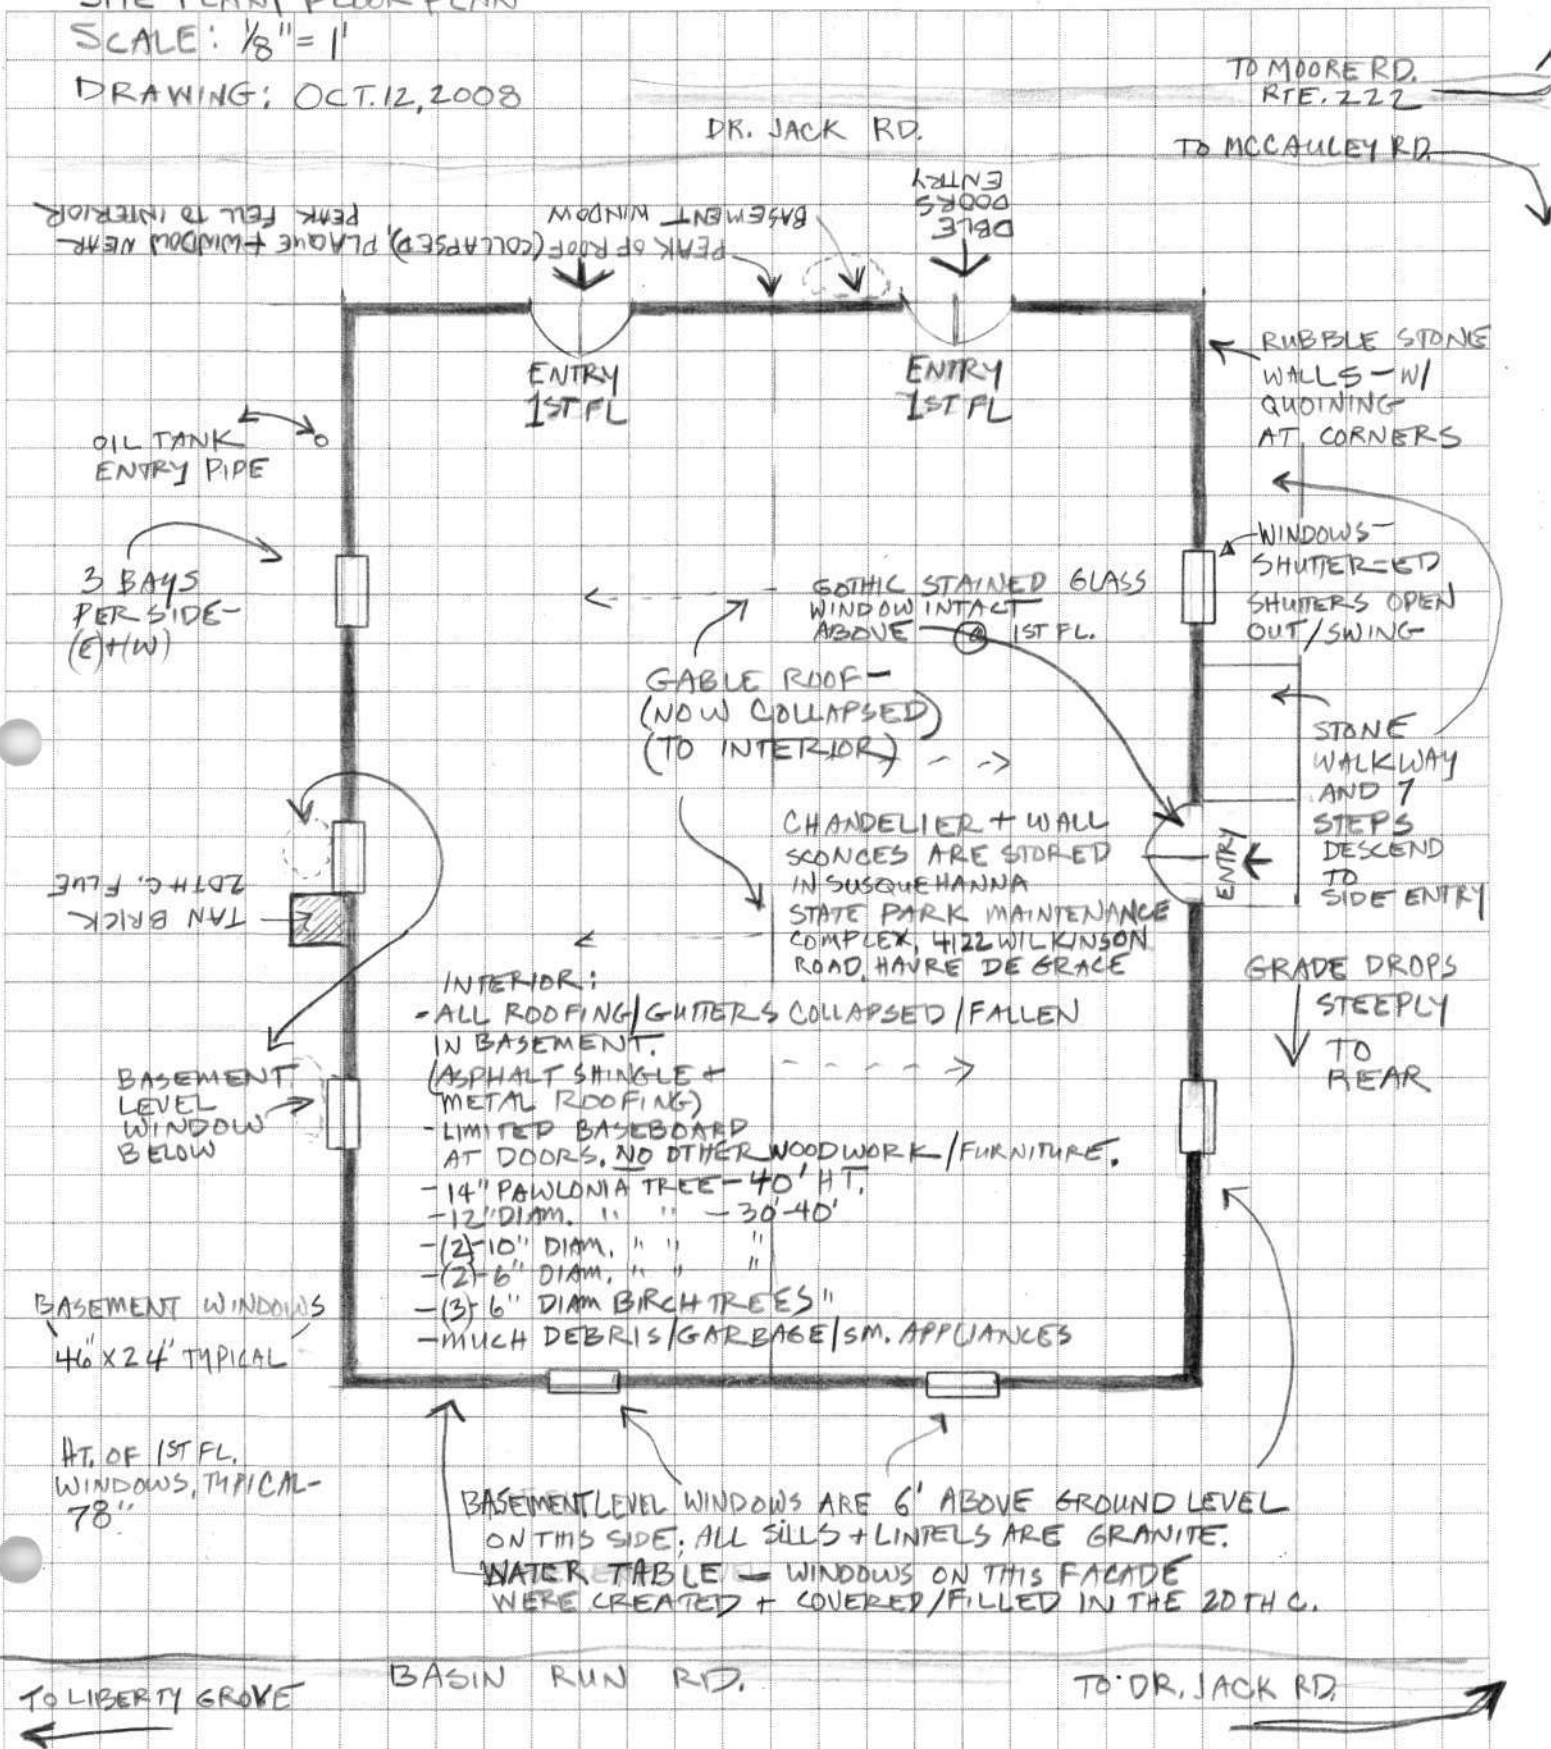 SITE PLAN/ FLOOR PLAN
SCALE: 1/8" = 1'
DRAWING: OCT. 12, 2008
TO MOORE RD.
RTE. 222
DR. JACK RD.
TO MCCAULEY RD.
DBLE
DOORS
ENTRY
BASEMENT WINDOW
PEAK OF ROOF (COLLAPSED), PLAQUE + WINDOW NEAR
PEAK FELL TO INTERIOR
ENTRY
1ST FL
ENTRY
1ST FL
RUBBLE STONE
WALLS - W/
QUOINING
AT CORNERS
OIL TANK
ENTRY PIPE
3 BAYS
PER SIDE-
(E)+(W)
WINDOWS-
SHUTTER=ED
SHUTTERS OPEN
OUT/SWING
GOTHIC STAINED GLASS
WINDOW INTACT
ABOVE @ 1ST FL.
GABLE ROOF-
(NOW COLLAPSED)
(TO INTERIOR)
STONE
WALKWAY
AND 7
STEPS
DESCEND
TO
SIDE ENTRY
ENTRY
CHANDELIER + WALL
SCONCES ARE STORED
IN SUSQUEHANNA
STATE PARK MAINTENANCE
COMPLEX, 4122 WILKINSON
ROAD, HAVRE DE GRACE
TAN BRICK
20TH C. FLUE
GRADE DROPS
STEEPLY
TO
REAR
BASEMENT
LEVEL
WINDOW
BELOW
INTERIOR:
- ALL ROOFING/GUTTERS COLLAPSED/FALLEN
IN BASEMENT.
(ASPHALT SHINGLE +
METAL ROOFING)
- LIMITED BASEBOARD
AT DOORS. NO OTHER WOODWORK/FURNITURE.
- 14" PAWLONIA TREE - 40' HT.
- 12" DIAM. " " - 30'-40'
- (2)-10" DIAM. " " "
- (2)-6" DIAM. " " "
- (3)-6" DIAM BIRCH TREES "
- MUCH DEBRIS/GARBAGE/SM. APPLIANCES
BASEMENT WINDOWS
46" X 24" TYPICAL
HT. OF 1ST FL.
WINDOWS, TYPICAL-
78"
BASEMENT LEVEL WINDOWS ARE 6' ABOVE GROUND LEVEL
ON THIS SIDE; ALL SILLS + LINTELS ARE GRANITE.
WATER TABLE - WINDOWS ON THIS FACADE
WERE CREATED + COVERED/FILLED IN THE 20TH C.
BASIN RUN RD.
TO LIBERTY GROVE
TO DR. JACK RD.